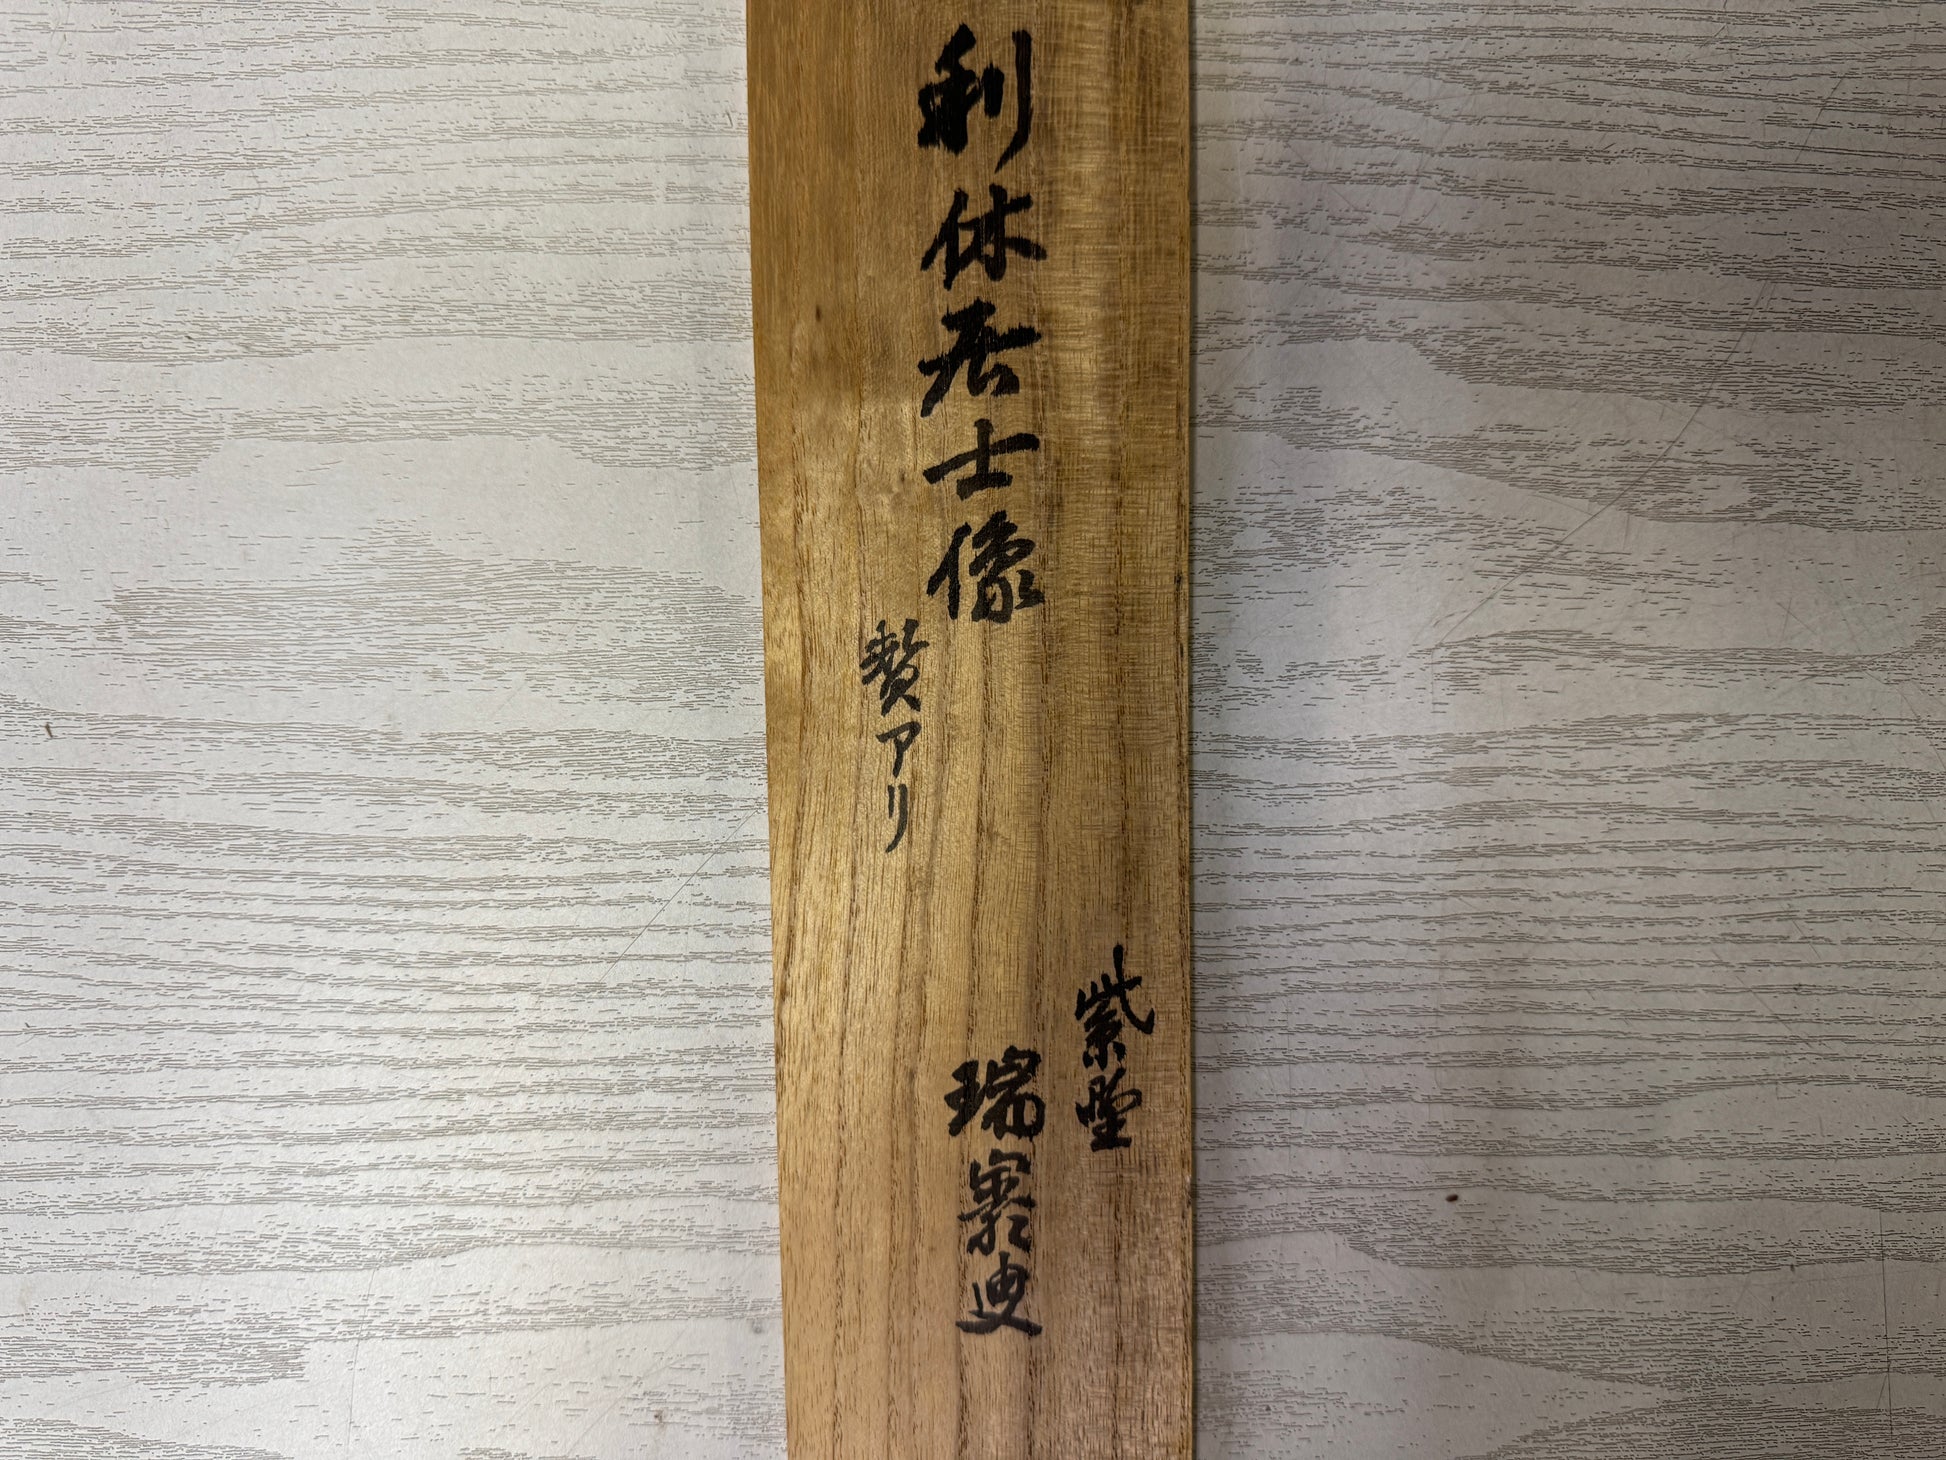 利休居士像
賛アリ
紫野
瑞巌